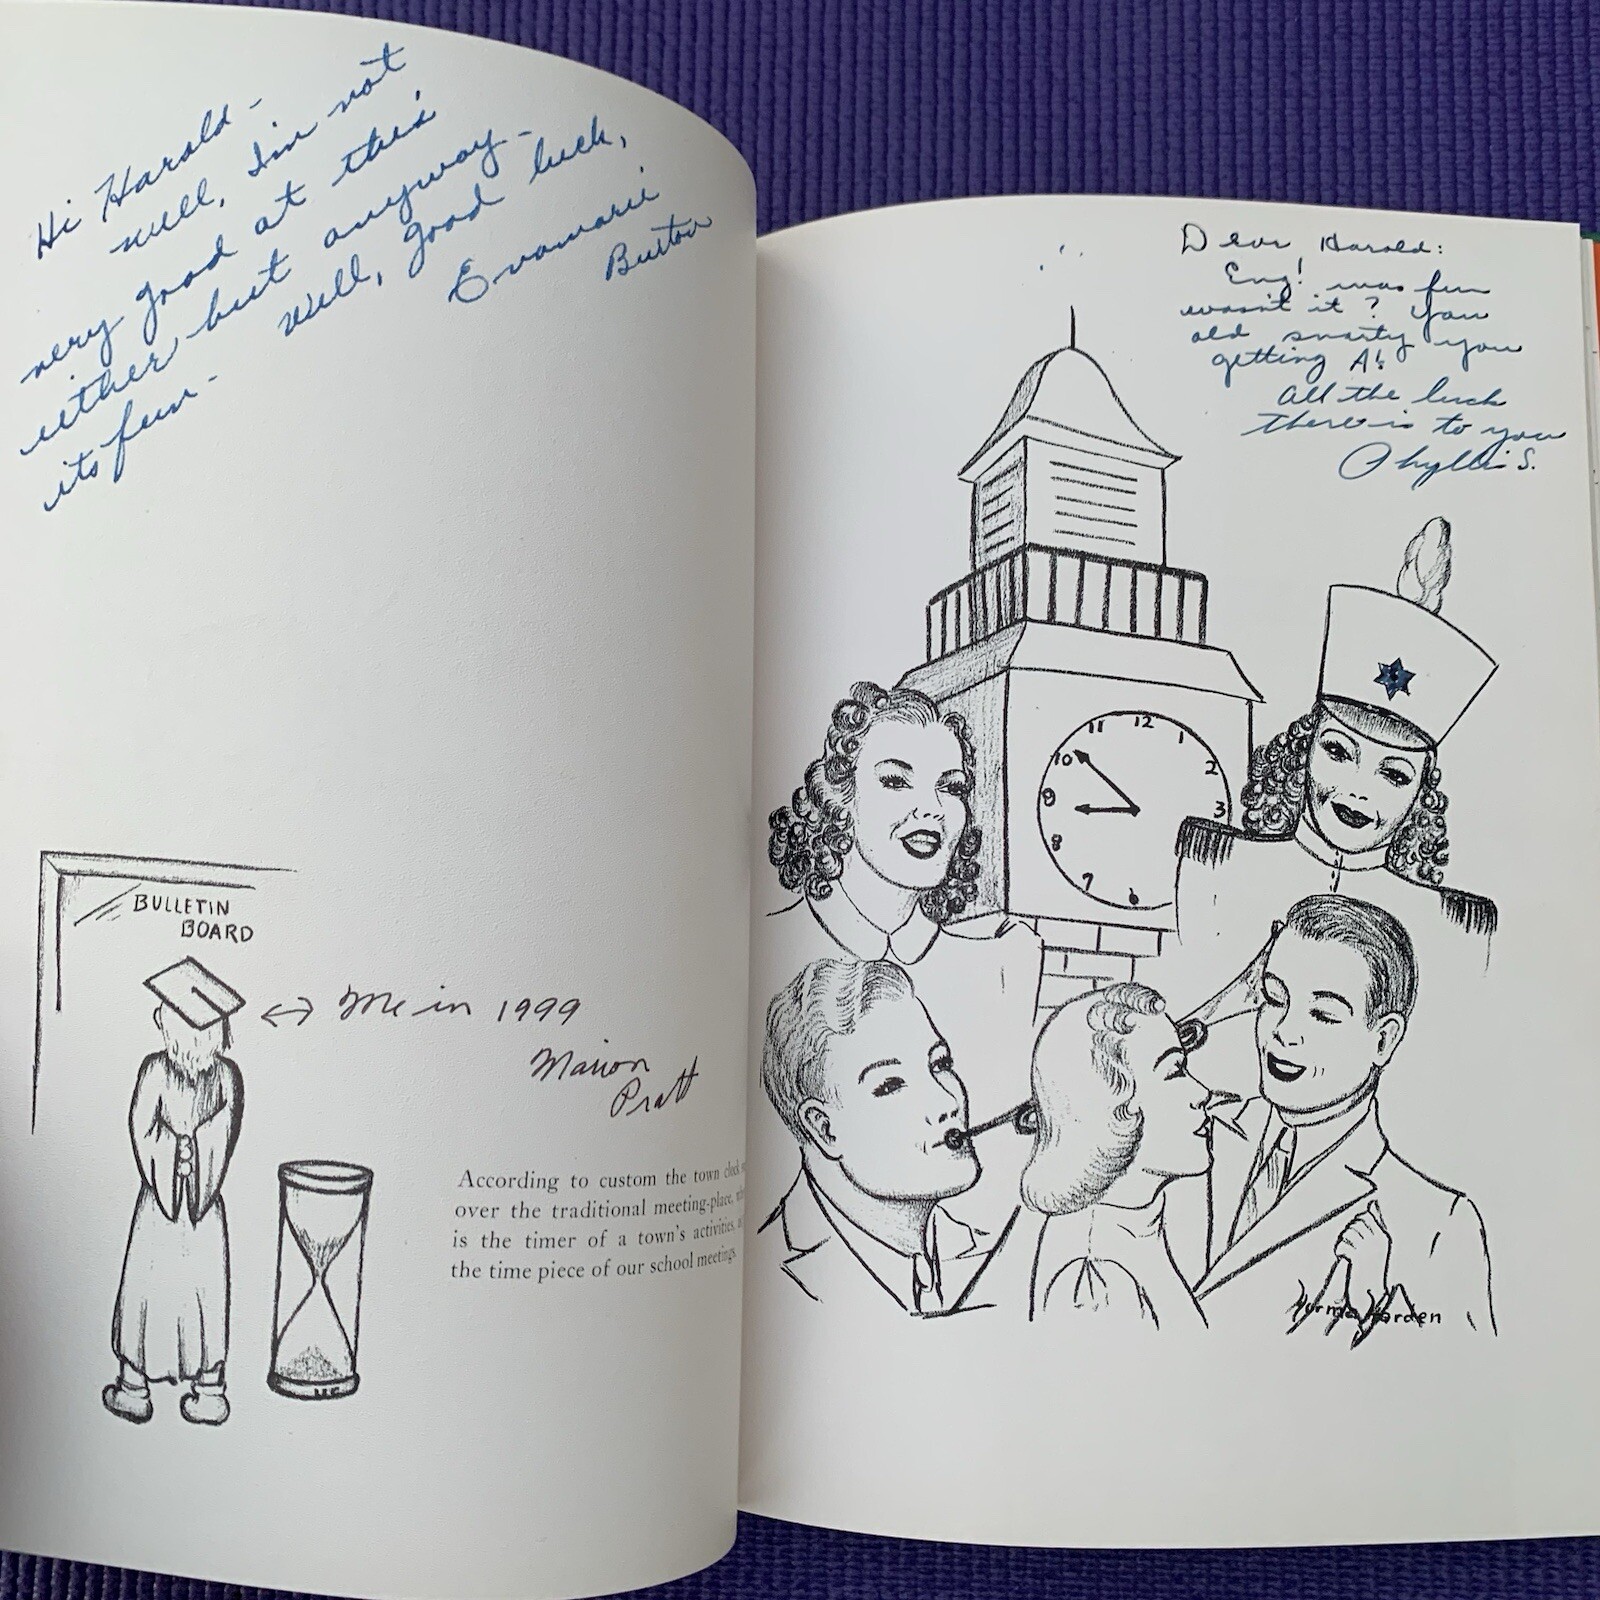 Hi Harold -
Well, I'm not
very good at this
either but anyway -
its fun -
Well, good luck,
Evamarie
Burton
BULLETIN
BOARD
Me in 1999
Marion
Pratt
According to custom the town clock
over the traditional meeting-place,
is the timer of a town's activities,
the time piece of our school meetings
HS
Dear Harold:
Eng! was fun
wasn't it? You
old smarty you
getting A!
All the luck
there is to you
Phyllis S.
11 12 1
10 2
9 3
8
7 6
Norma Harden